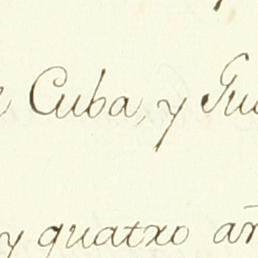 Cuba, y
y quatro